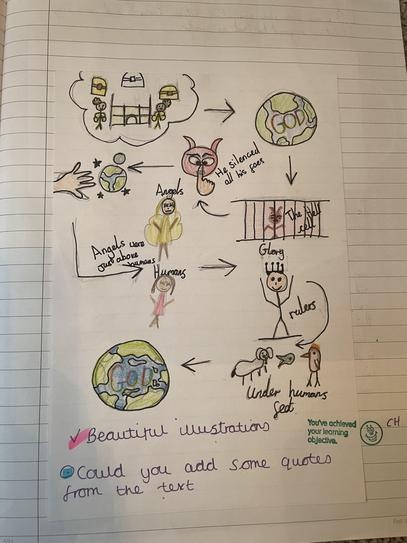 GOD
He silenced
all his foes
Angels
Angels were
just above
humans
Humans
Glory
rulers
God
Under humans
feet.
Beautiful illustrations
You've achieved
your learning
objective.
CH
Could you add some quotes
from the text